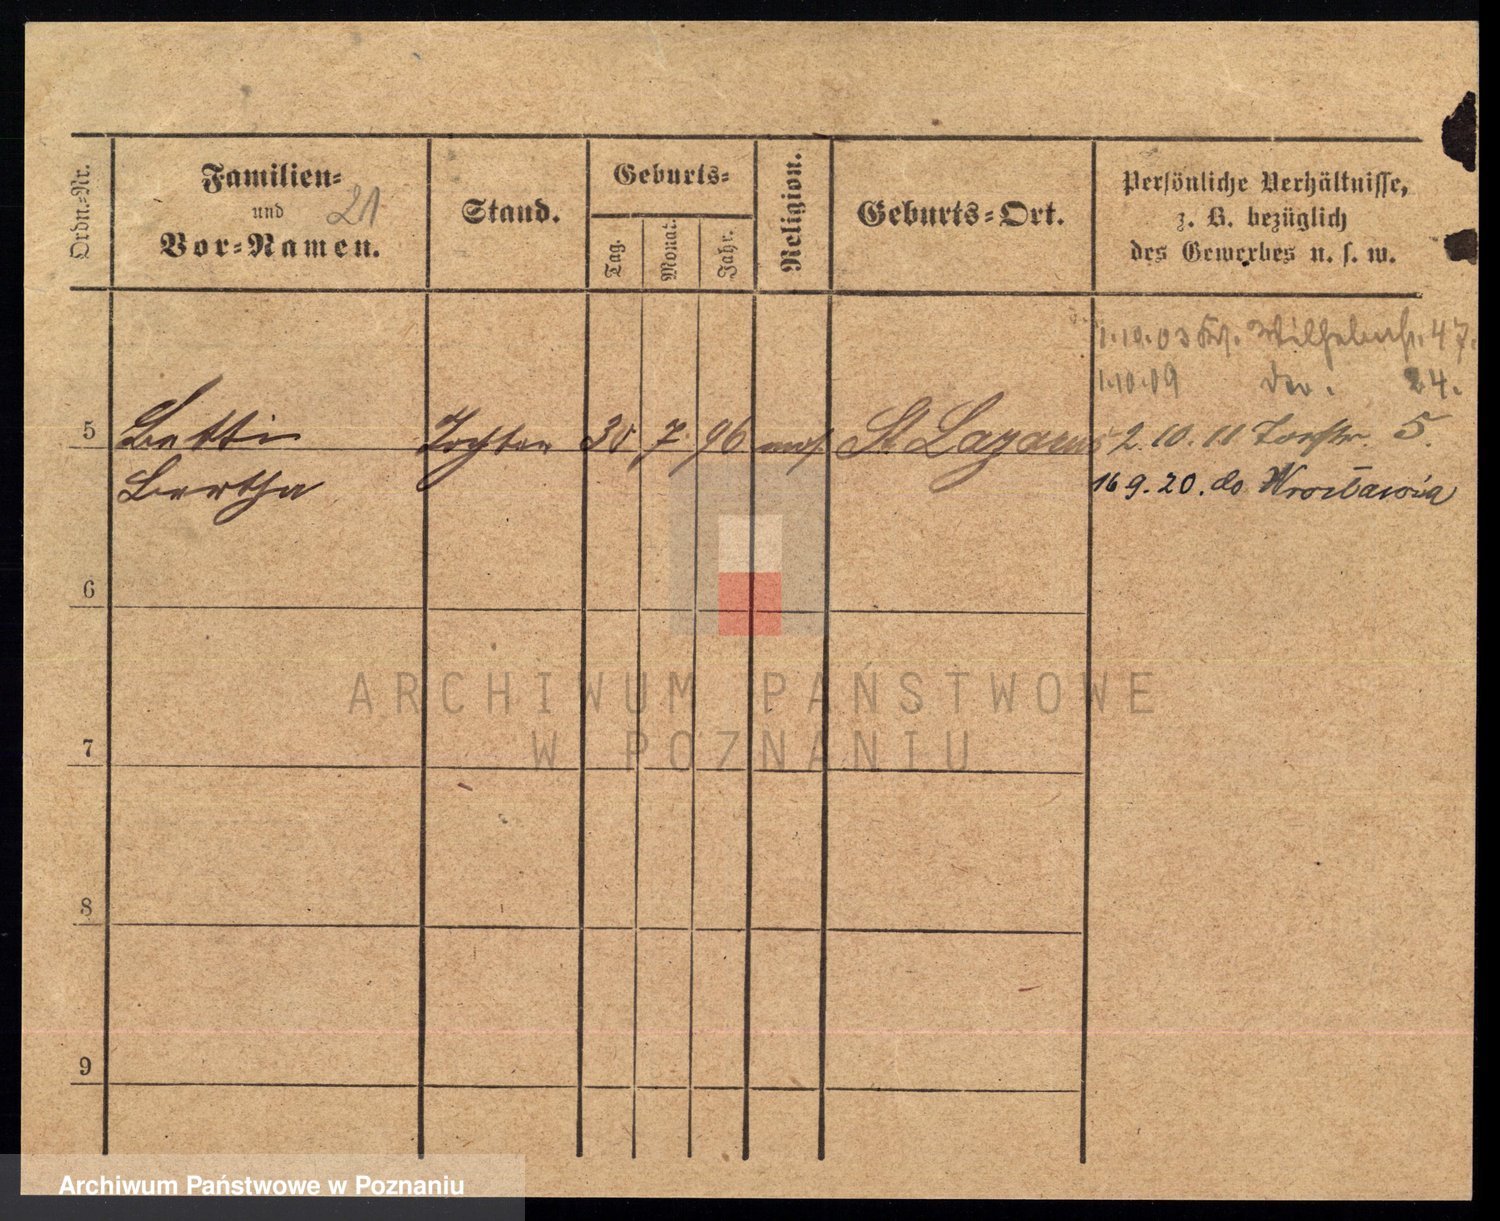 Ordn.-Nr.
Familien-
und 21
Vor-Namen.
Stand.
Geburts-
Tag.
Monat.
Jahr.
Religion.
Geburts-Ort.
Persönliche Verhältnisse,
z. B. bezüglich
des Gewerbes u. s. w.
1.10.03 Wilhelmstr. 47.
1.10.09 24.
5 Betti Tochter 30 7 96 mos. St Lazarus 2.10.11 Torstr. 5.
Bertha 16 9. 20. do Wrocławia
6
7
8
9
ARCHIWUM PAŃSTWOWE
W POZNANIU
Archiwum Państwowe w Poznaniu